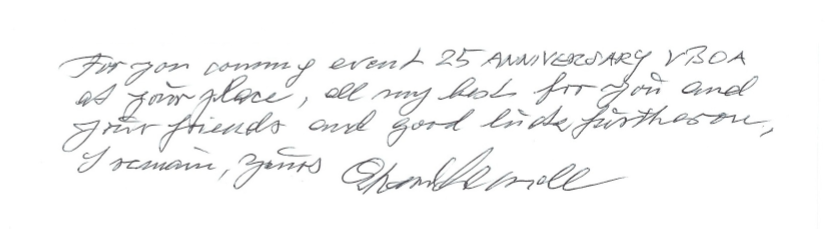 For you coming event 25 ANNIVERSARY VBOA
at your place, all my best for you and
your friends and good luck furtheron,
I remain, yours